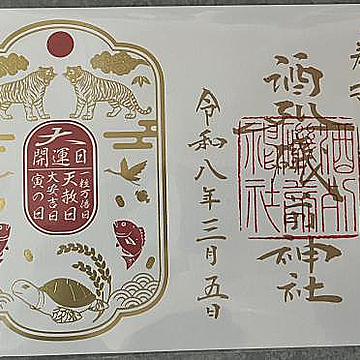 酒列磯前神社
令和八年三月五日
大
開運日
一粒万倍日
天赦日
大安吉日
寅の日